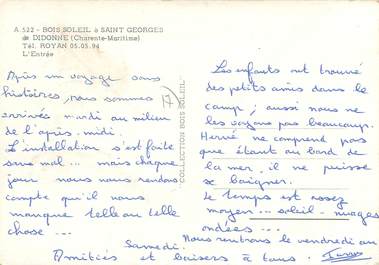 A 522 - BOIS SOLEIL à SAINT GEORGES
de DIDONNE (Charente-Maritime)
Tél. ROYAN 05.05.94
L'Entrée
Après un voyage sans
histoires, nous sommes
arrivés mardi au milieu
de l'après-midi.
L'installation s'est faite
sans mal... mais chaque
jour nous nous rendons
compte qu'il nous
manque telle ou telle
chose...
17
COLLECTION BOIS SOLEIL
Les enfants ont trouvé
des petits amis dans le
camp ; aussi nous ne
les voyons pas beaucoup.
Hervé ne comprend pas
que étant au bord de
la mer, il ne puisse
se baigner.
Le temps est assez
moyen... soleil - nuages
ondées...
Nous rentrons le vendredi au
Samedi.
Amitiés et baisers à tous.